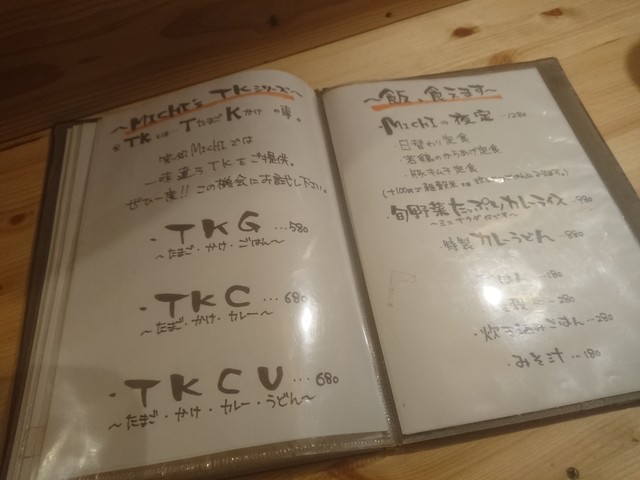 ～MICHI's TKシリーズ～
※TKとは…TたまごKかけ の事。
MICHIでは
一味違うTKをご提供。
ぜひ一度!!この機会にお試し下さい。
・TKG …580
～たまご・かけ・ごはん～
・TKC …680
～たまご・かけ・カレー～
・TKCU …680
～たまご・かけ・カレー・うどん～
～飯、食うます～
・MICHIの夜定 …1280
・日替わり定食
・若鶏のからあげ定食
・豚キムチ定食
・旬野菜たっぷりカレーライス …980
～ミニサラダ付です～
・特製カレーうどん …880
ごはん …180
…280
・炊き込みごはん …280
・みそ汁 …180